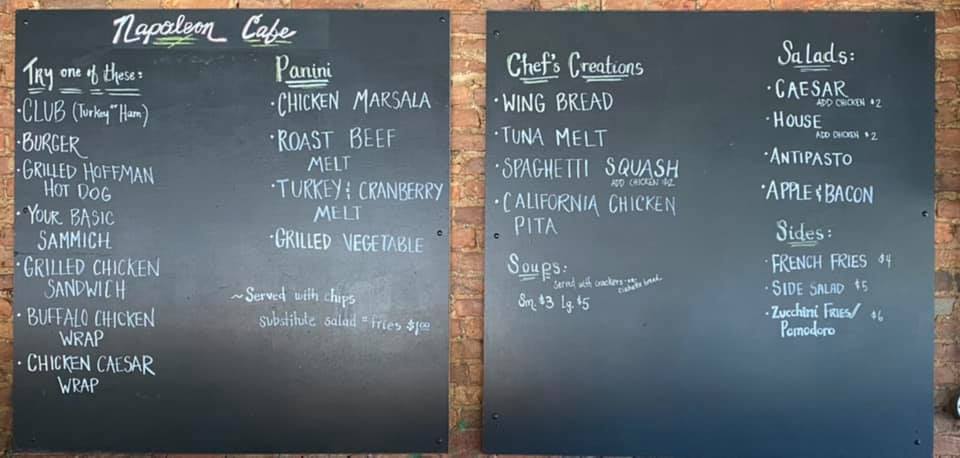 Napoleon Cafe
Try one of these:
· CLUB (Turkey or Ham)
· BURGER
· GRILLED HOFFMAN
HOT DOG
· YOUR BASIC
SAMMICH
· GRILLED CHICKEN
SANDWICH
· BUFFALO CHICKEN
WRAP
· CHICKEN CAESAR
WRAP
Panini
· CHICKEN MARSALA
· ROAST BEEF
MELT
· TURKEY & CRANBERRY
MELT
· GRILLED VEGETABLE
~ Served with chips
Substitute salad or fries $1.00
Chef's Creations
· WING BREAD
· TUNA MELT
· SPAGHETTI SQUASH
ADD CHICKEN $2
· CALIFORNIA CHICKEN
PITA
Soups:
Served with crackers or
ciabatta bread
Sm. $3 Lg. $5
Salads:
· CAESAR
ADD CHICKEN $2
· HOUSE
ADD CHICKEN $2
· ANTIPASTO
· APPLE & BACON
Sides:
· FRENCH FRIES $4
· SIDE SALAD $5
· Zucchini FRIES/ $6
Pomodoro